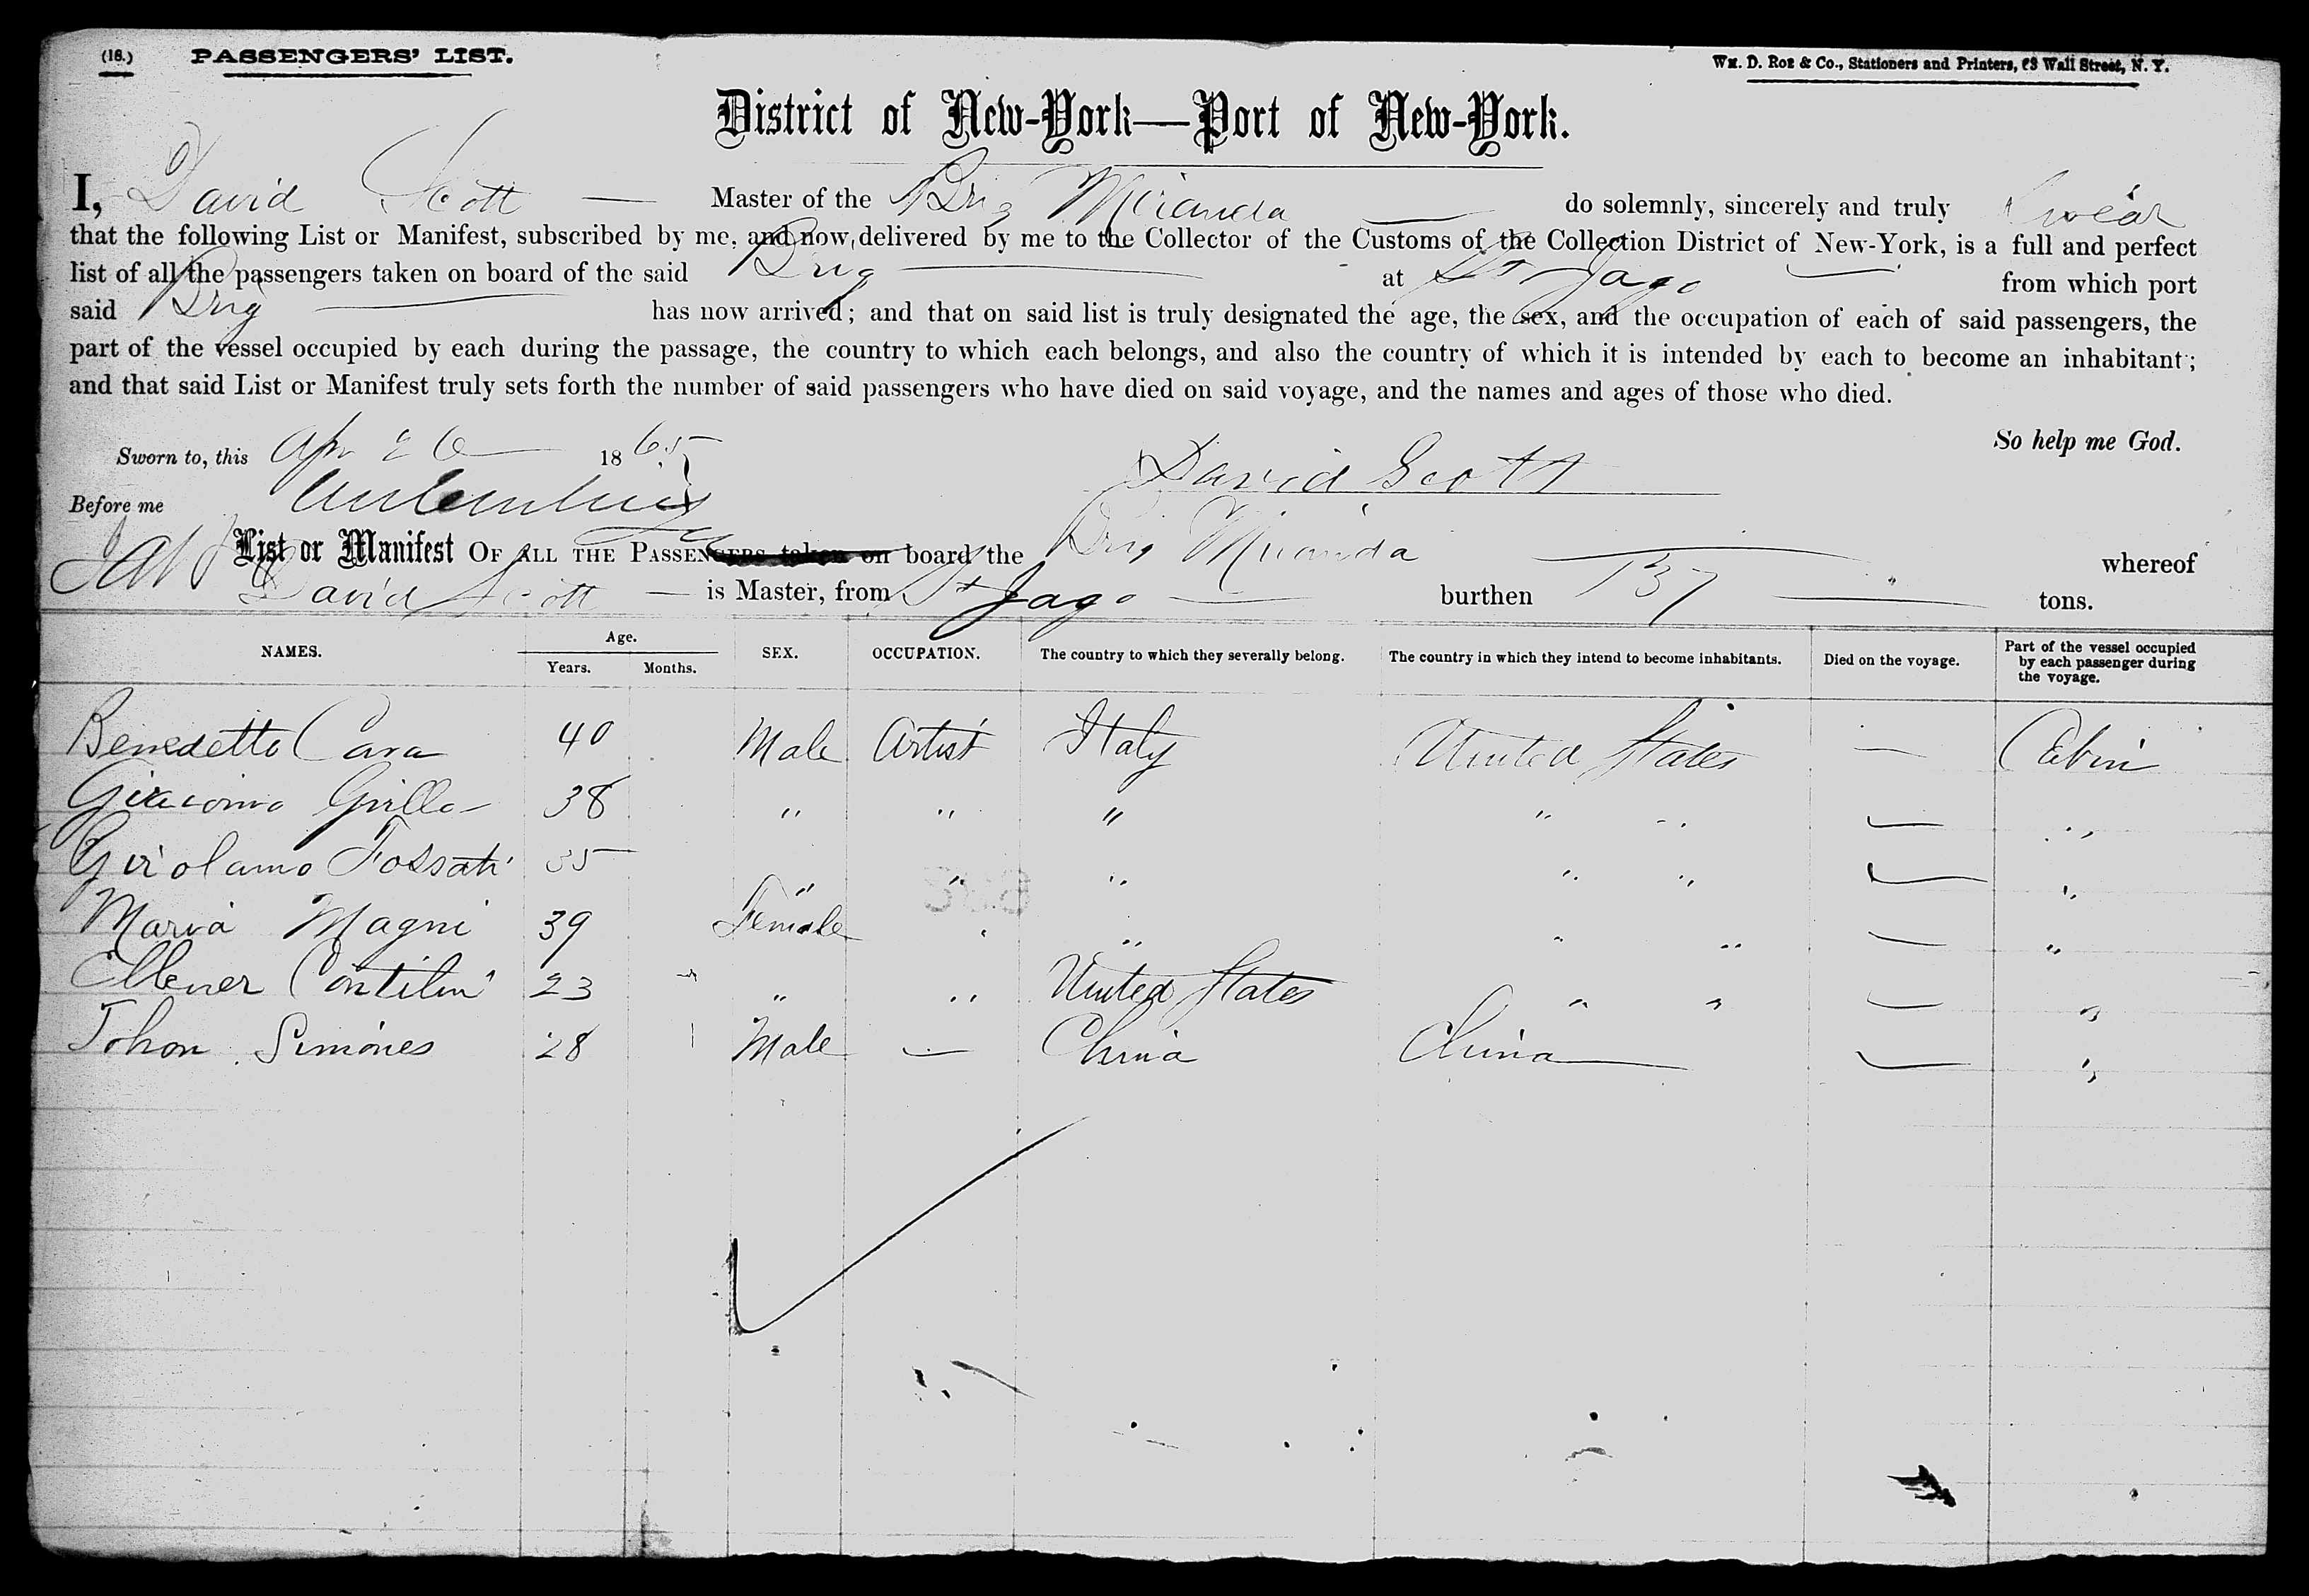 (18.) PASSENGERS' LIST. Wm. D. Roe & Co., Stationers and Printers, 63 Wall Street, N. Y.
District of New-York—Port of New-York.
I, David Scott — Master of the Brig Miranda — do solemnly, sincerely and truly Swear
that the following List or Manifest, subscribed by me, and now delivered by me to the Collector of the Customs of the Collection District of New-York, is a full and perfect
list of all the passengers taken on board of the said Brig — at St Jago — from which port
said Brig — has now arrived; and that on said list is truly designated the age, the sex, and the occupation of each of said passengers, the
part of the vessel occupied by each during the passage, the country to which each belongs, and also the country of which it is intended by each to become an inhabitant;
and that said List or Manifest truly sets forth the number of said passengers who have died on said voyage, and the names and ages of those who died.
So help me God.
Sworn to, this Apr 26 — 1865 David Scott
Before me
List or Manifest OF ALL THE PASSENGERS taken on board the Brig Miranda — whereof
David Scott — is Master, from St Jago — burthen 137 — tons.
NAMES. Age. Years. Months. SEX. OCCUPATION. The country to which they severally belong. The country in which they intend to become inhabitants. Died on the voyage. Part of the vessel occupied by each passenger during the voyage.
Benedetto Cara 40 Male Artist Italy United States — Cabin
Giacomo Grillo 38 " " " " " — "
Girolamo Fossati 35 " " " " " — "
Maria Magni 39 Female " " " " — "
Ellener Contilini 23 " " United States " " — "
Tohon Simones 28 Male — China China — "